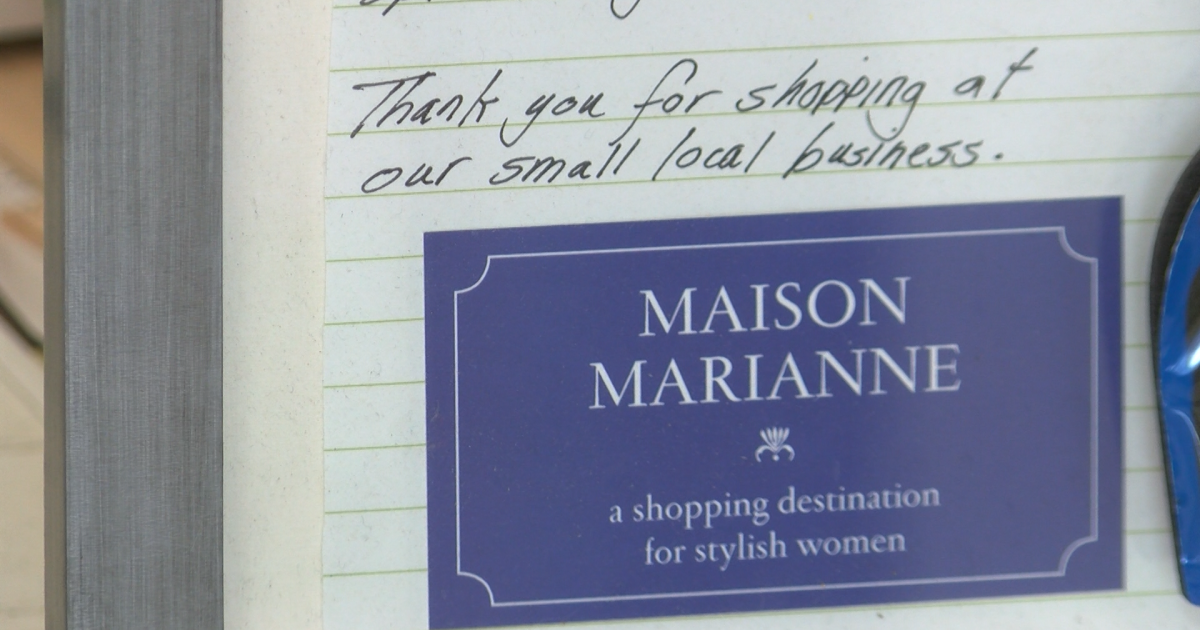 Thank you for shopping at
our small local business.
MAISON
MARIANNE
a shopping destination
for stylish women